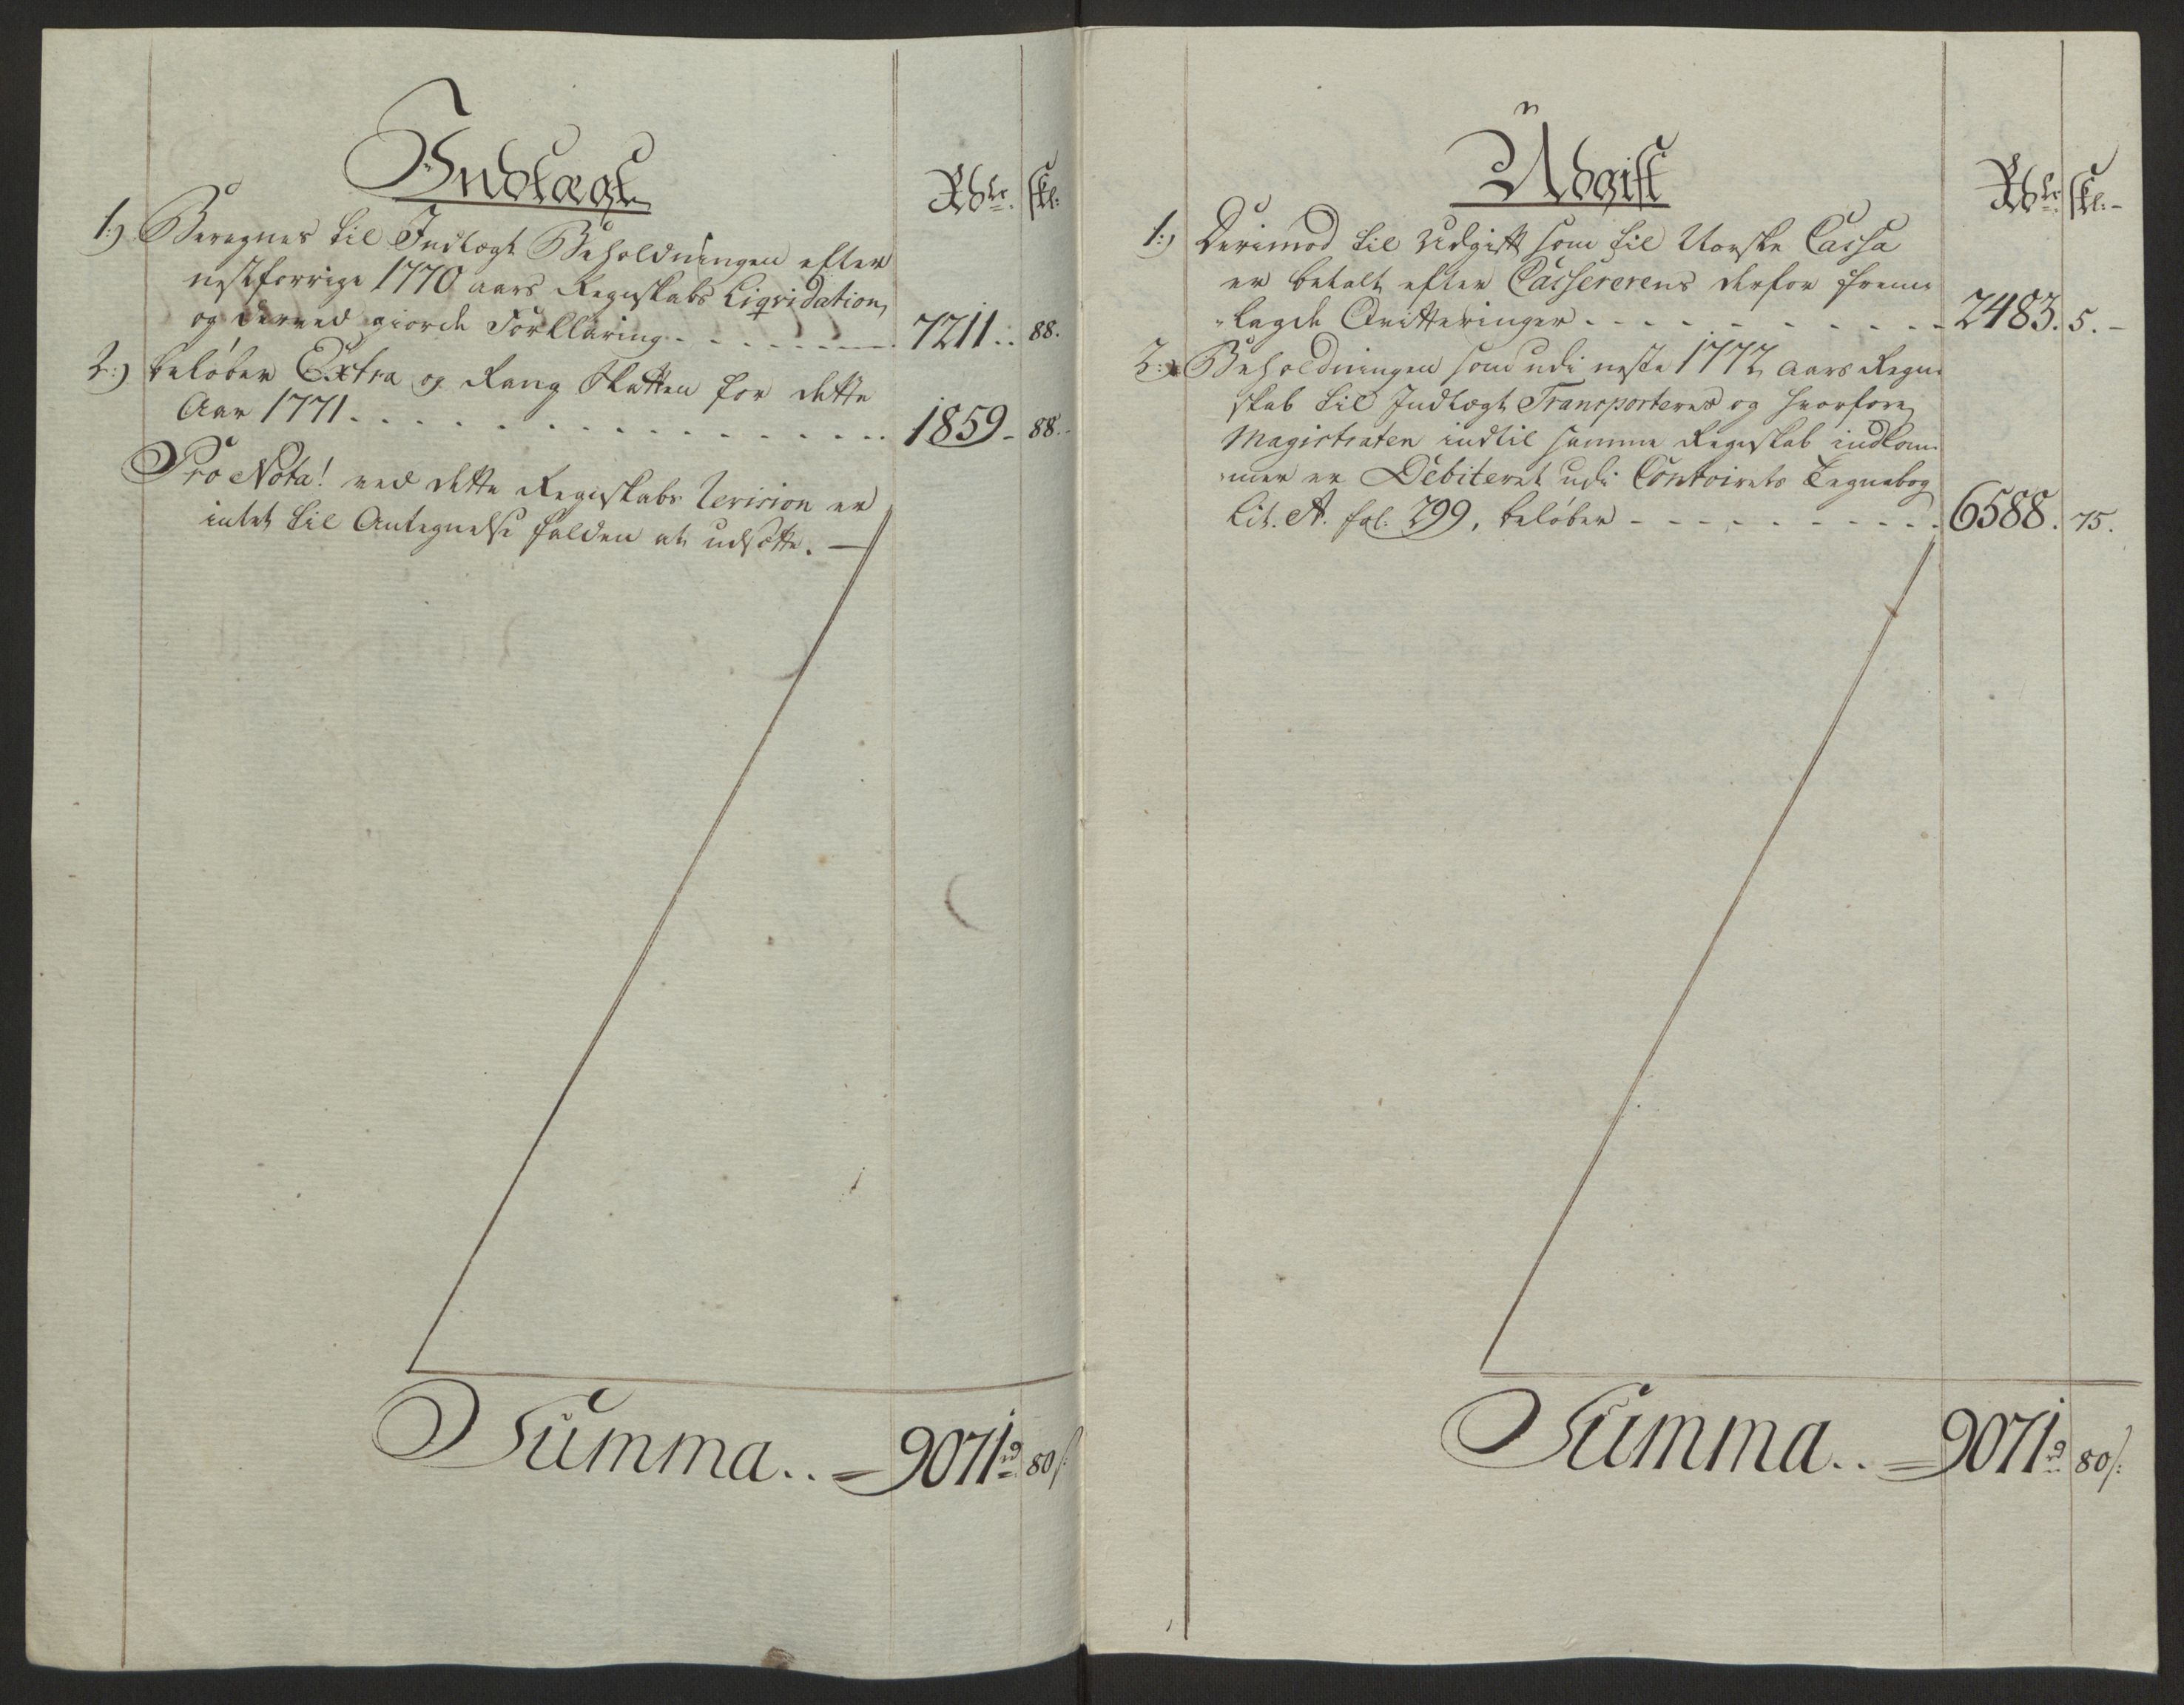 Indtægt
Rdlr. skl:
1:) Beregnes til Indtægt Beholdningen efter
nestforrige 1770 aars Regnskabs Liqvidation,
og derved giorde Forklaring - - - - - - - 7211.. 88.
2:) beløber Extra og Rang Skatten for dette
Aar 1771 - - - - - - - - - - - - 1859 - 88.
Pro Nota! ved dette Regnskabs Revision er
intet til Antegnelse falden at udsætte. —
Summa.. = 9071 rd 80 s:
Udgift
Rdlr. skl:
1:) Derimod til Udgift som til Norske Cassa
er betalt efter Cassererens derfor frem-
lagde Qvitteringer - - - - - - - - - - 2483. 5. -
2:) Beholdningen som udi neste 1772 aars Regn-
skab til Indtægt Transporteres og hvorfore
Magistraten indtil samme Regnskab indkom-
mer er Debiteret udi Contoirets Tegnebog
Lit. A. fol. 299, beløber - - - - - - - - - 6588. 75.
Summa.. = 9071 rd 80 s: